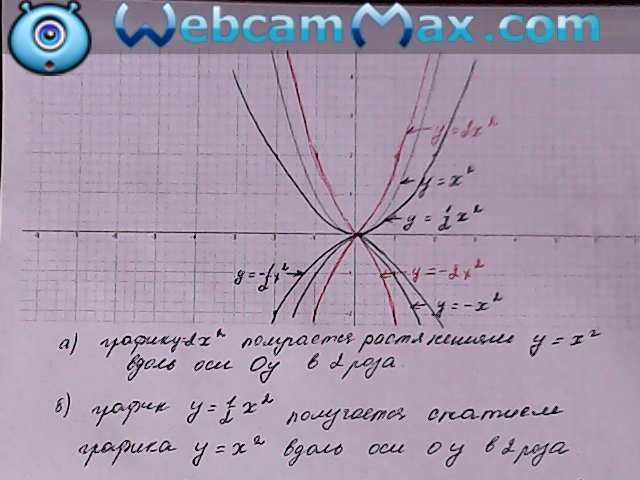 WebcamMax.com
y = 2x²
y = x²
y = ½x²
y = -½x²
y = -2x²
y = -x²
а) график y=2x² получается растяжением y = x²
вдоль оси Oy в 2 роза.
б) график y = ½x² получается сжатием
графика y = x² вдоль оси oy в 2 роза